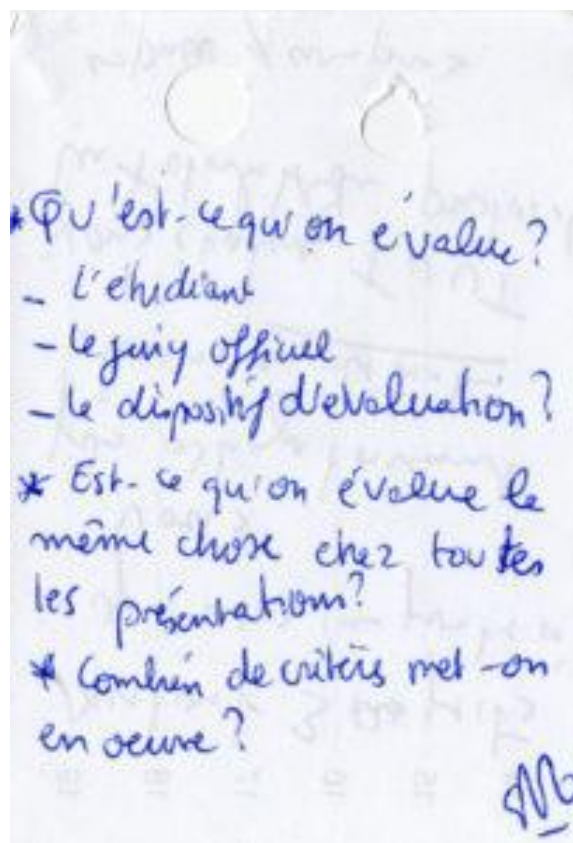 * Qu'est-ce qu'on évalue?
- L'étudiant
- le jury officiel
- le dispositif d'évaluation?
* Est-ce qu'on évalue la
même chose chez toutes
les présentations?
* Combien de critères met-on
en oeuvre?